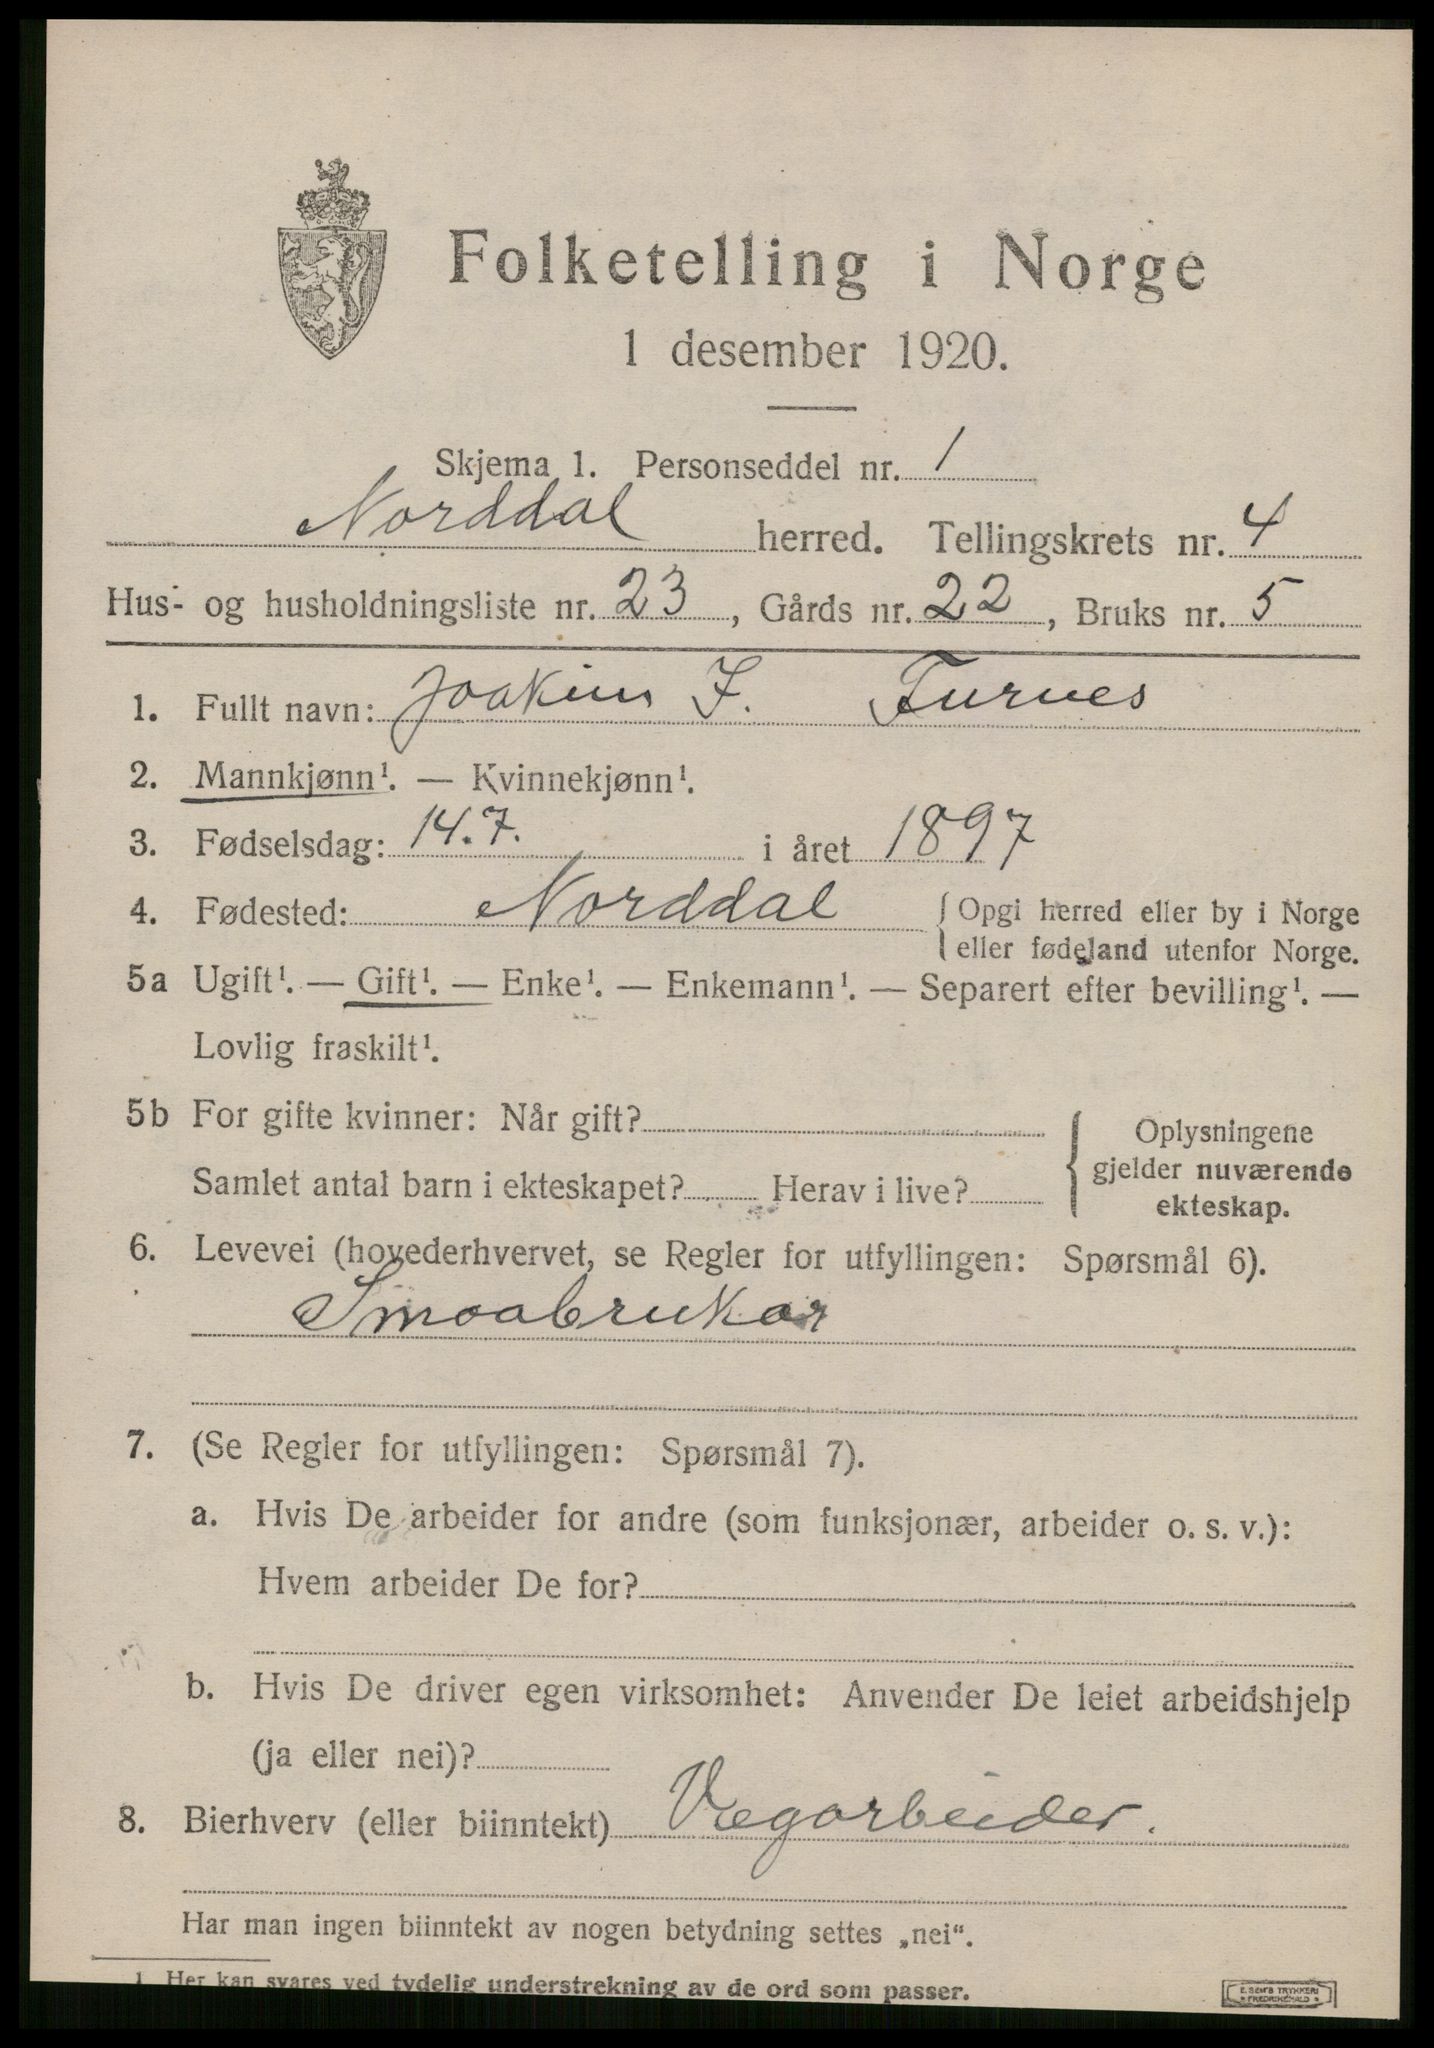 Folketelling i Norge
1 desember 1920.
Skjema 1. Personseddel nr. 1
Norddal herred. Tellingskrets nr. 4
Hus- og husholdningsliste nr. 23, Gårds nr. 22, Bruks nr. 5
1. Fullt navn: Joakim I. Furnes
2. Mannkjønn¹. — Kvinnekjønn¹.
3. Fødselsdag: 14.7. i året 1897
4. Fødested: Norddal { Opgi herred eller by i Norge
eller fødeland utenfor Norge.
5a Ugift¹. — Gift¹. — Enke¹. — Enkemann¹. — Separert efter bevilling¹. —
Lovlig fraskilt¹.
5b For gifte kvinner: Når gift?
Samlet antal barn i ekteskapet? Herav i live?
{ Oplysningene
gjelder nuværende
ekteskap.
6. Levevei (hovederhvervet, se Regler for utfyllingen: Spørsmål 6).
Smaabrukar
7. (Se Regler for utfyllingen: Spørsmål 7).
a. Hvis De arbeider for andre (som funksjonær, arbeider o. s. v.):
Hvem arbeider De for?
b. Hvis De driver egen virksomhet: Anvender De leiet arbeidshjelp
(ja eller nei)?
8. Bierhverv (eller biinntekt) Vegarbeider.
Har man ingen biinntekt av nogen betydning settes „nei“.
1 Her kan svares ved tydelig understrekning av de ord som passer.
E. SEM'S TRYKKERI
* FREDRIKSHALD *